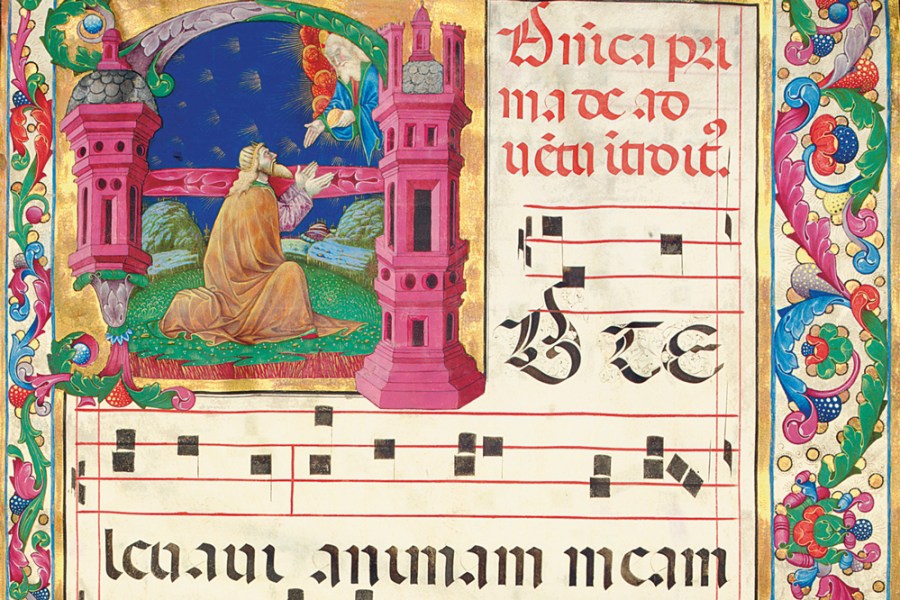 Dñica pri
ma de ad
uētu itroit᷒.
AD TE
leuaui animam meam